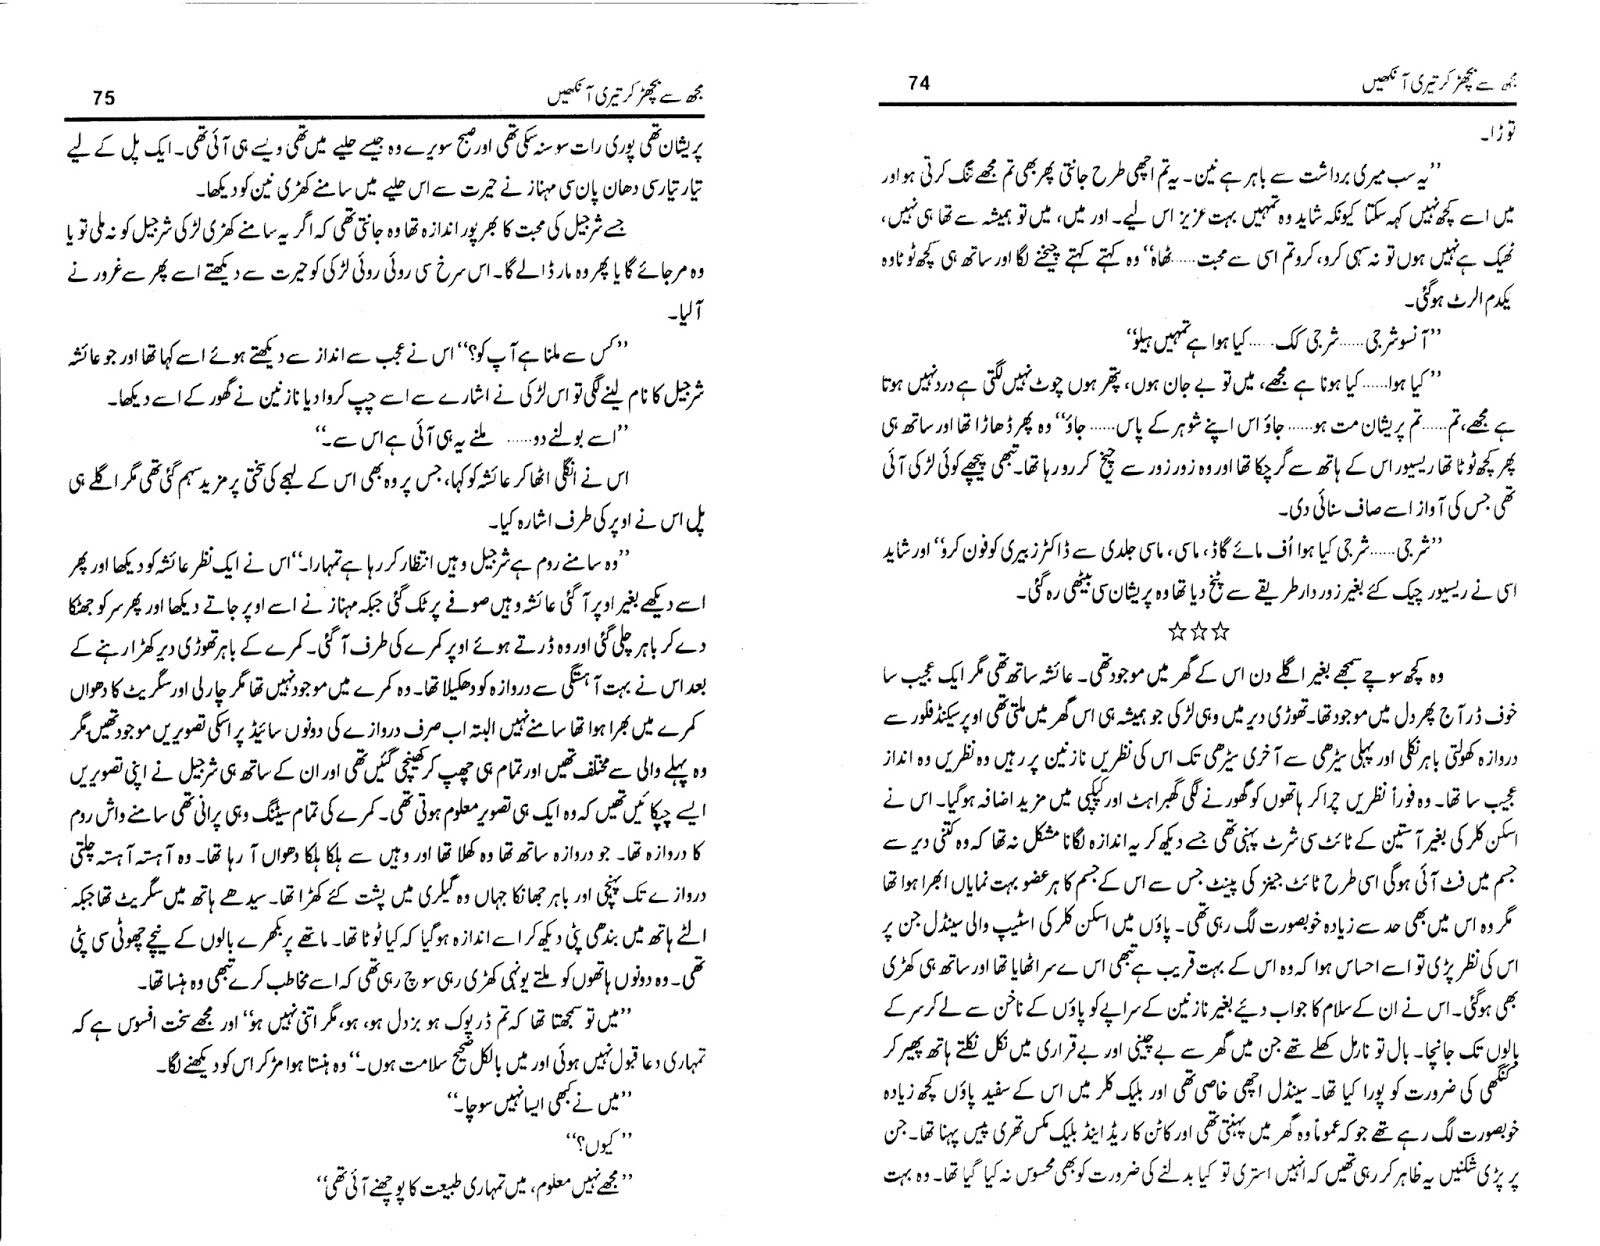 مجھ سے بچھڑ کر تیری آنکھیں 74
توڑا۔
’’یہ سب میری برداشت سے باہر ہے نین۔ یہ تم اچھی طرح جانتی پھر بھی تم مجھے تنگ کرتی ہو اور
میں اسے کچھ نہیں کہہ سکتا کیونکہ شاید وہ تمہیں بہت عزیز اس لیے۔ اور میں، میں تو ہمیشہ سے تھا ہی نہیں،
ٹھیک ہے نہیں ہوں تو نہ سہی کرو، کرو تم اسی سے محبت......ٹھاہ‘‘ وہ کہتے کہتے چیخنے لگا اور ساتھ ہی کچھ ٹوٹا وہ
یکدم الرٹ ہوگئی۔
’’آنسو شرجی......شرجی کک......کیا ہوا ہے تمہیں ہیلو‘‘
’’کیا ہوا......کیا ہونا ہے مجھے، میں تو بے جان ہوں، پتھر ہوں چوٹ نہیں لگتی ہے درد نہیں ہوتا
ہے مجھے، تم......تم پریشان مت ہو......جاؤ اس اپنے شوہر کے پاس......جاؤ‘‘ وہ پھر ڈھاڑا تھا اور ساتھ ہی
پھر کچھ ٹوٹا تھا ریسیور اس کے ہاتھ سے گر چکا تھا اور وہ زور زور سے چیخ کر رو رہا تھا۔ تبھی پیچھے کوئی لڑکی آئی
تھی جس کی آواز اسے صاف سنائی دی۔
’’شرجی......شرجی کیا ہوا اُف مائے گاڈ، ماسی، ماسی جلدی سے ڈاکٹر زبیری کو فون کرو‘‘ اور شاید
اسی نے ریسیور چیک کئے بغیر زور دار طریقے سے پٹخ دیا تھا وہ پریشان سی بیٹھی رہ گئی۔
☆☆☆
وہ کچھ سوچے سمجھے بغیر اگلے دن اس کے گھر میں موجود تھی۔ عائشہ ساتھ تھی مگر ایک عجیب سا
خوف ڈر آج پھر دل میں موجود تھا۔ تھوڑی دیر میں وہی لڑکی جو ہمیشہ ہی اس گھر میں ملتی تھی اوپر سیکنڈ فلور سے
دروازہ کھولتی باہر نکلی اور پہلی سیڑھی سے آخری سیڑھی تک اس کی نظریں نازنین پر رہیں وہ نظریں وہ انداز
عجیب سا تھا۔ وہ فوراً نظریں چرا کر ہاتھوں کو گھورنے لگی گھبراہٹ اور کپکپی میں مزید اضافہ ہوگیا۔ اس نے
اسکن کلر کی بغیر آستین کے ٹائٹ سی شرٹ پہنی تھی جسے دیکھ کر یہ اندازہ لگانا مشکل نہ تھا کہ وہ کتنی دیر سے
جسم میں فٹ آئی ہوگی اسی طرح ٹائٹ جینز کی پینٹ جس سے اس کے جسم کا ہر عضو بہت نمایاں ابھرا ہوا تھا
مگر وہ اس میں بھی حد سے زیادہ خوبصورت لگ رہی تھی۔ پاؤں میں اسکن کلر کی اسٹیپ والی سینڈل جن پر
اس کی نظر پڑی تو اسے احساس ہوا کہ وہ اس کے بہت قریب ہے تبھی اس ے سر اٹھایا تھا اور ساتھ ہی کھڑی
بھی ہوگئی۔ اس نے ان کے سلام کا جواب دیئے بغیر نازنین کے سراپے کو پاؤں کے ناخن سے لے کر سر کے
بالوں تک جانچا۔ بال تو نارمل کھلے تھے جن میں گھر سے بے چینی اور بے قراری میں نکل نکلتے ہاتھ پھیر کر
کنگھی کی ضرورت کو پورا کیا تھا۔ سینڈل اچھی خاصی تھی اور بلیک کلر میں اس کے سفید پاؤں کچھ زیادہ
خوبصورت لگ رہے تھے جو کہ عموماً وہ گھر میں پہنتی تھی اور کاٹن کا ریڈ اینڈ بلیک مکس تھری پیس پہنا تھا۔ جن
پر پڑی شکنیں یہ ظاہر کر رہی تھیں کہ انہیں استری تو کیا بدلنے کی ضرورت کو بھی محسوس نہ کیا گیا تھا۔ وہ بہت
مجھ سے بچھڑ کر تیری آنکھیں 75
پریشان تھی پوری رات سو نہ سکی تھی اور صبح سویرے وہ جیسے حلیے میں تھی ویسے ہی آئی تھی۔ ایک پل کے لیے
تیار تیار سی دھان پان سی مہناز نے حیرت سے اس حلیے میں سامنے کھڑی نین کو دیکھا۔
جسے شرجیل کی محبت کا بھرپور اندازہ تھا وہ جانتی تھی کہ اگر یہ سامنے کھڑی لڑکی شرجیل کو نہ ملی تو یا
وہ مر جائے گا یا پھر وہ مار ڈالے گا۔ اس سرخ سی روئی روئی لڑکی کو حیرت سے دیکھتے اسے پھر سے غرور نے
آلیا۔
’’کس سے ملنا ہے آپ کو؟‘‘ اس نے عجب سے انداز سے دیکھتے ہوئے اسے کہا تھا اور جو عائشہ
شرجیل کا نام لینے لگی تو اس لڑکی نے اشارے سے اسے چپ کروا دیا نازنین نے گھور کے اسے دیکھا۔
’’اسے بولنے دو...... ملنے یہ ہی آئی ہے اس سے۔‘‘
اس نے انگلی اٹھا کر عائشہ کو کہا، جس پر وہ بھی اس کے لہجے کی سختی پر مزید سہم گئی تھی مگر اگلے ہی
پل اس نے اوپر کی طرف اشارہ کیا۔
’’وہ سامنے روم ہے شرجیل وہیں انتظار کر رہا ہے تمہارا۔‘‘ اس نے ایک نظر عائشہ کو دیکھا اور پھر
اسے دیکھے بغیر اوپر آگئی عائشہ وہیں صوفے پر ٹک گئی جبکہ مہناز نے اسے اوپر جاتے دیکھا اور پھر سر کو جھٹکا
دے کر باہر چلی گئی اور وہ ڈرتے ہوئے اوپر کمرے کی طرف آگئی۔ کمرے کے باہر تھوڑی دیر کھڑا رہنے کے
بعد اس نے بہت آہستگی سے دروازہ کو دھکیلا تھا۔ وہ کمرے میں موجود نہیں تھا مگر چارلی اور سگریٹ کا دھواں
کمرے میں بھرا ہوا تھا سامنے نہیں البتہ اب صرف دروازے کی دونوں سائیڈ پر اسکی تصویریں موجود تھیں مگر
وہ پہلے والی سے مختلف تھیں اور تمام ہی چھپ کر کھینچی گئیں تھی اور ان کے ساتھ ہی شرجیل نے اپنی تصویریں
ایسے چپکائیں تھیں کہ وہ ایک ہی تصویر معلوم ہوتی تھی۔ کمرے کی تمام سیٹنگ وہی پرانی تھی سامنے واش روم
کا دروازہ تھا۔ جو دروازہ ساتھ تھا وہ کھلا تھا اور وہیں سے ہلکا ہلکا دھواں آ رہا تھا۔ وہ آہستہ آہستہ چلتی
دروازے تک پہنچی اور باہر جھانکا جہاں وہ گیلری میں پشت کئے کھڑا تھا۔ سیدھے ہاتھ میں سگریٹ تھا جبکہ
الٹے ہاتھ میں بندھی پٹی دیکھ کر اسے اندازہ ہوگیا کہ کیا ٹوٹا تھا۔ ماتھے پر بکھرے بالوں کے نیچے چھوٹی سی پٹی
تھی۔ وہ دونوں ہاتھوں کو ملتے یونہی کھڑی رہی سوچ رہی تھی کہ اسے مخاطب کرے تبھی وہ ہنسا تھا۔
’’میں تو سمجھتا تھا کہ تم ڈرپوک ہو بزدل ہو، ہو، مگر اتنی نہیں ہو‘‘ اور مجھے سخت افسوس ہے کہ
تمہاری دعا قبول نہیں ہوئی اور میں بالکل صحیح سلامت ہوں۔‘‘ وہ ہنستا ہوا مڑ کر اس کو دیکھنے لگا۔
’’میں نے کبھی ایسا نہیں سوچا۔‘‘
’’کیوں؟‘‘
’’مجھے نہیں معلوم، میں تمہاری طبیعت کا پوچھنے آئی تھی‘‘